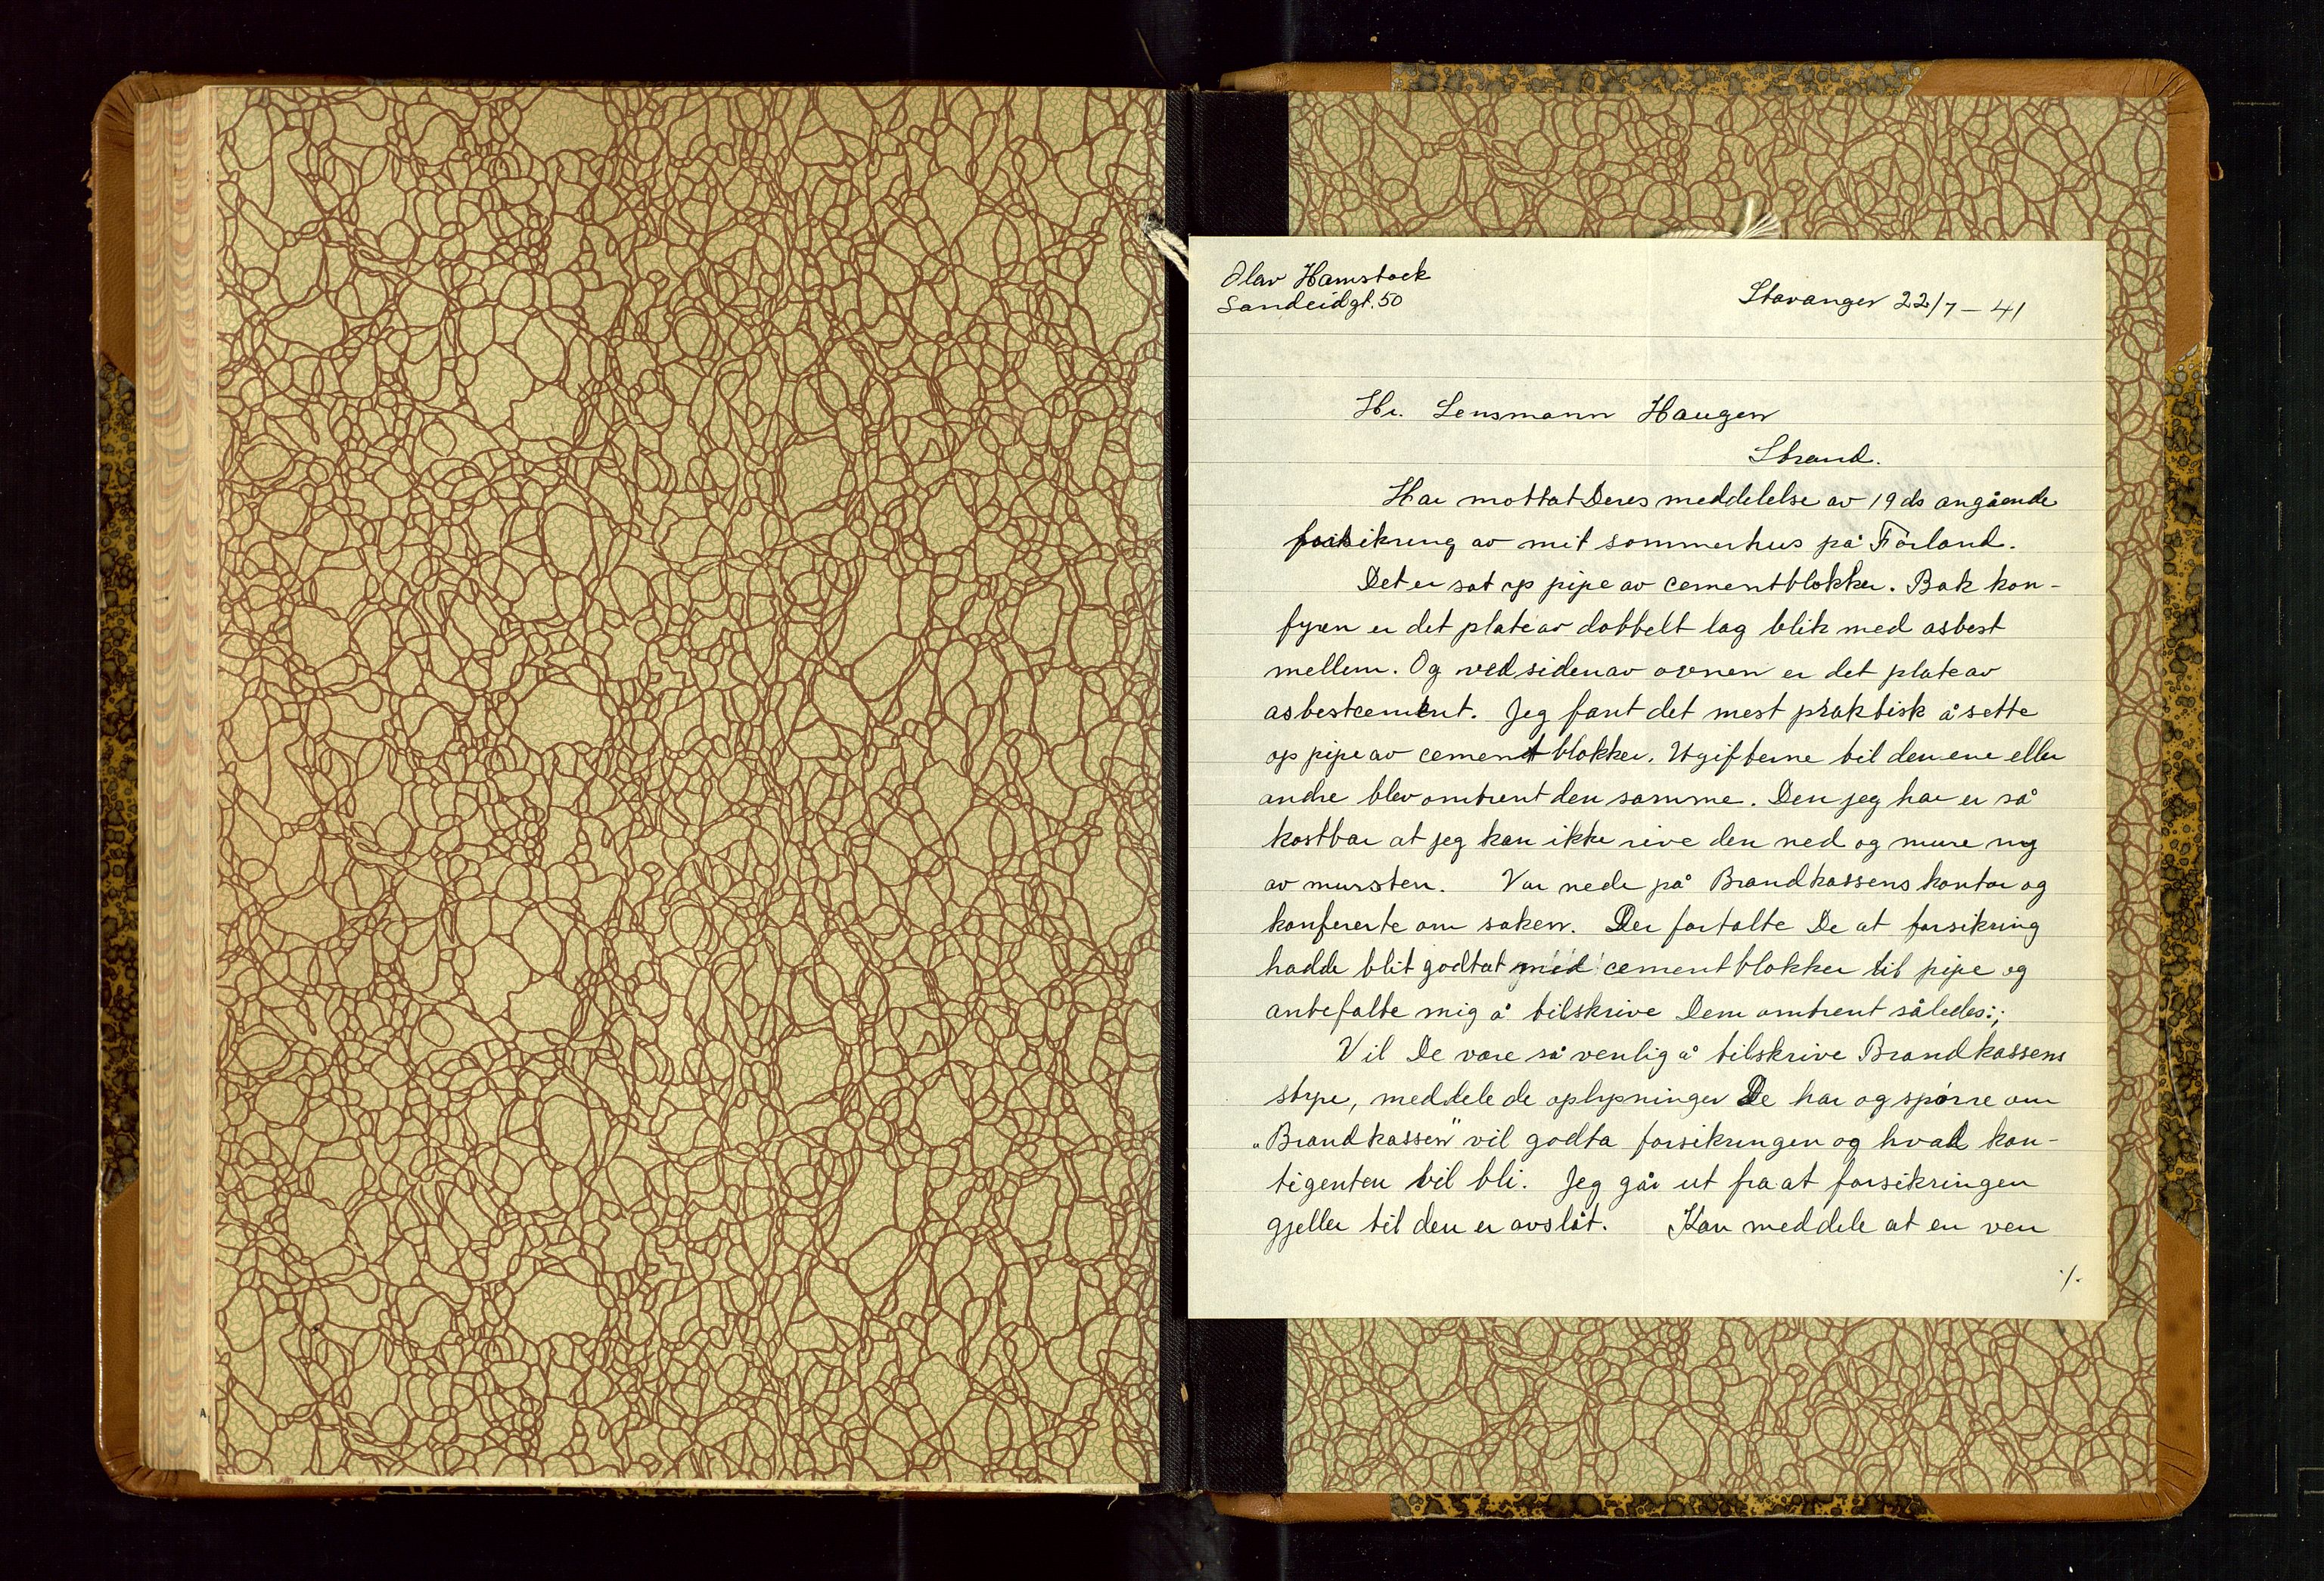 Olav Hamstock
Sandeidgt. 50
Stavanger 22/7 - 41
Hr. Lensmann Haugen
Strand.
Har mottat Deres meddelelse av 19 ds angående
forsikring av mit sommerhus påFørland.
Det er sat op pipe av cementblokker. Bak kon-
fyren er det plate av dobbelt lag blik med asbest
mellem. Og ved siden av ovnen er det plate av
asbestcement. Jeg fant det mest praktisk å sette
op pipe av cementblokker. Utgifterne til den ene eller
andre blev omtrent den samme. Den jeg har er så
kostbar at jeg kan ikke rive den ned og mure ny
av mursten. Var nede på Brandkassens kontor og
konfererte om saken. Der fortalte De at forsikring
hadde blit godtat med cementblokker til pipe og
anbefalte mig å tilskrive Dem omtrent således:;
Vil De være så venlig å tilskrive Brandkassens
stype, meddele de oplysninger De har og spørre om
"Brandkassen" vil godta forsikringen og hvad kon-
tigenten vil bli. Jeg går ut fra at forsikringen
gjeller til den er avslåt. Kan meddele at en ven
./.
A.